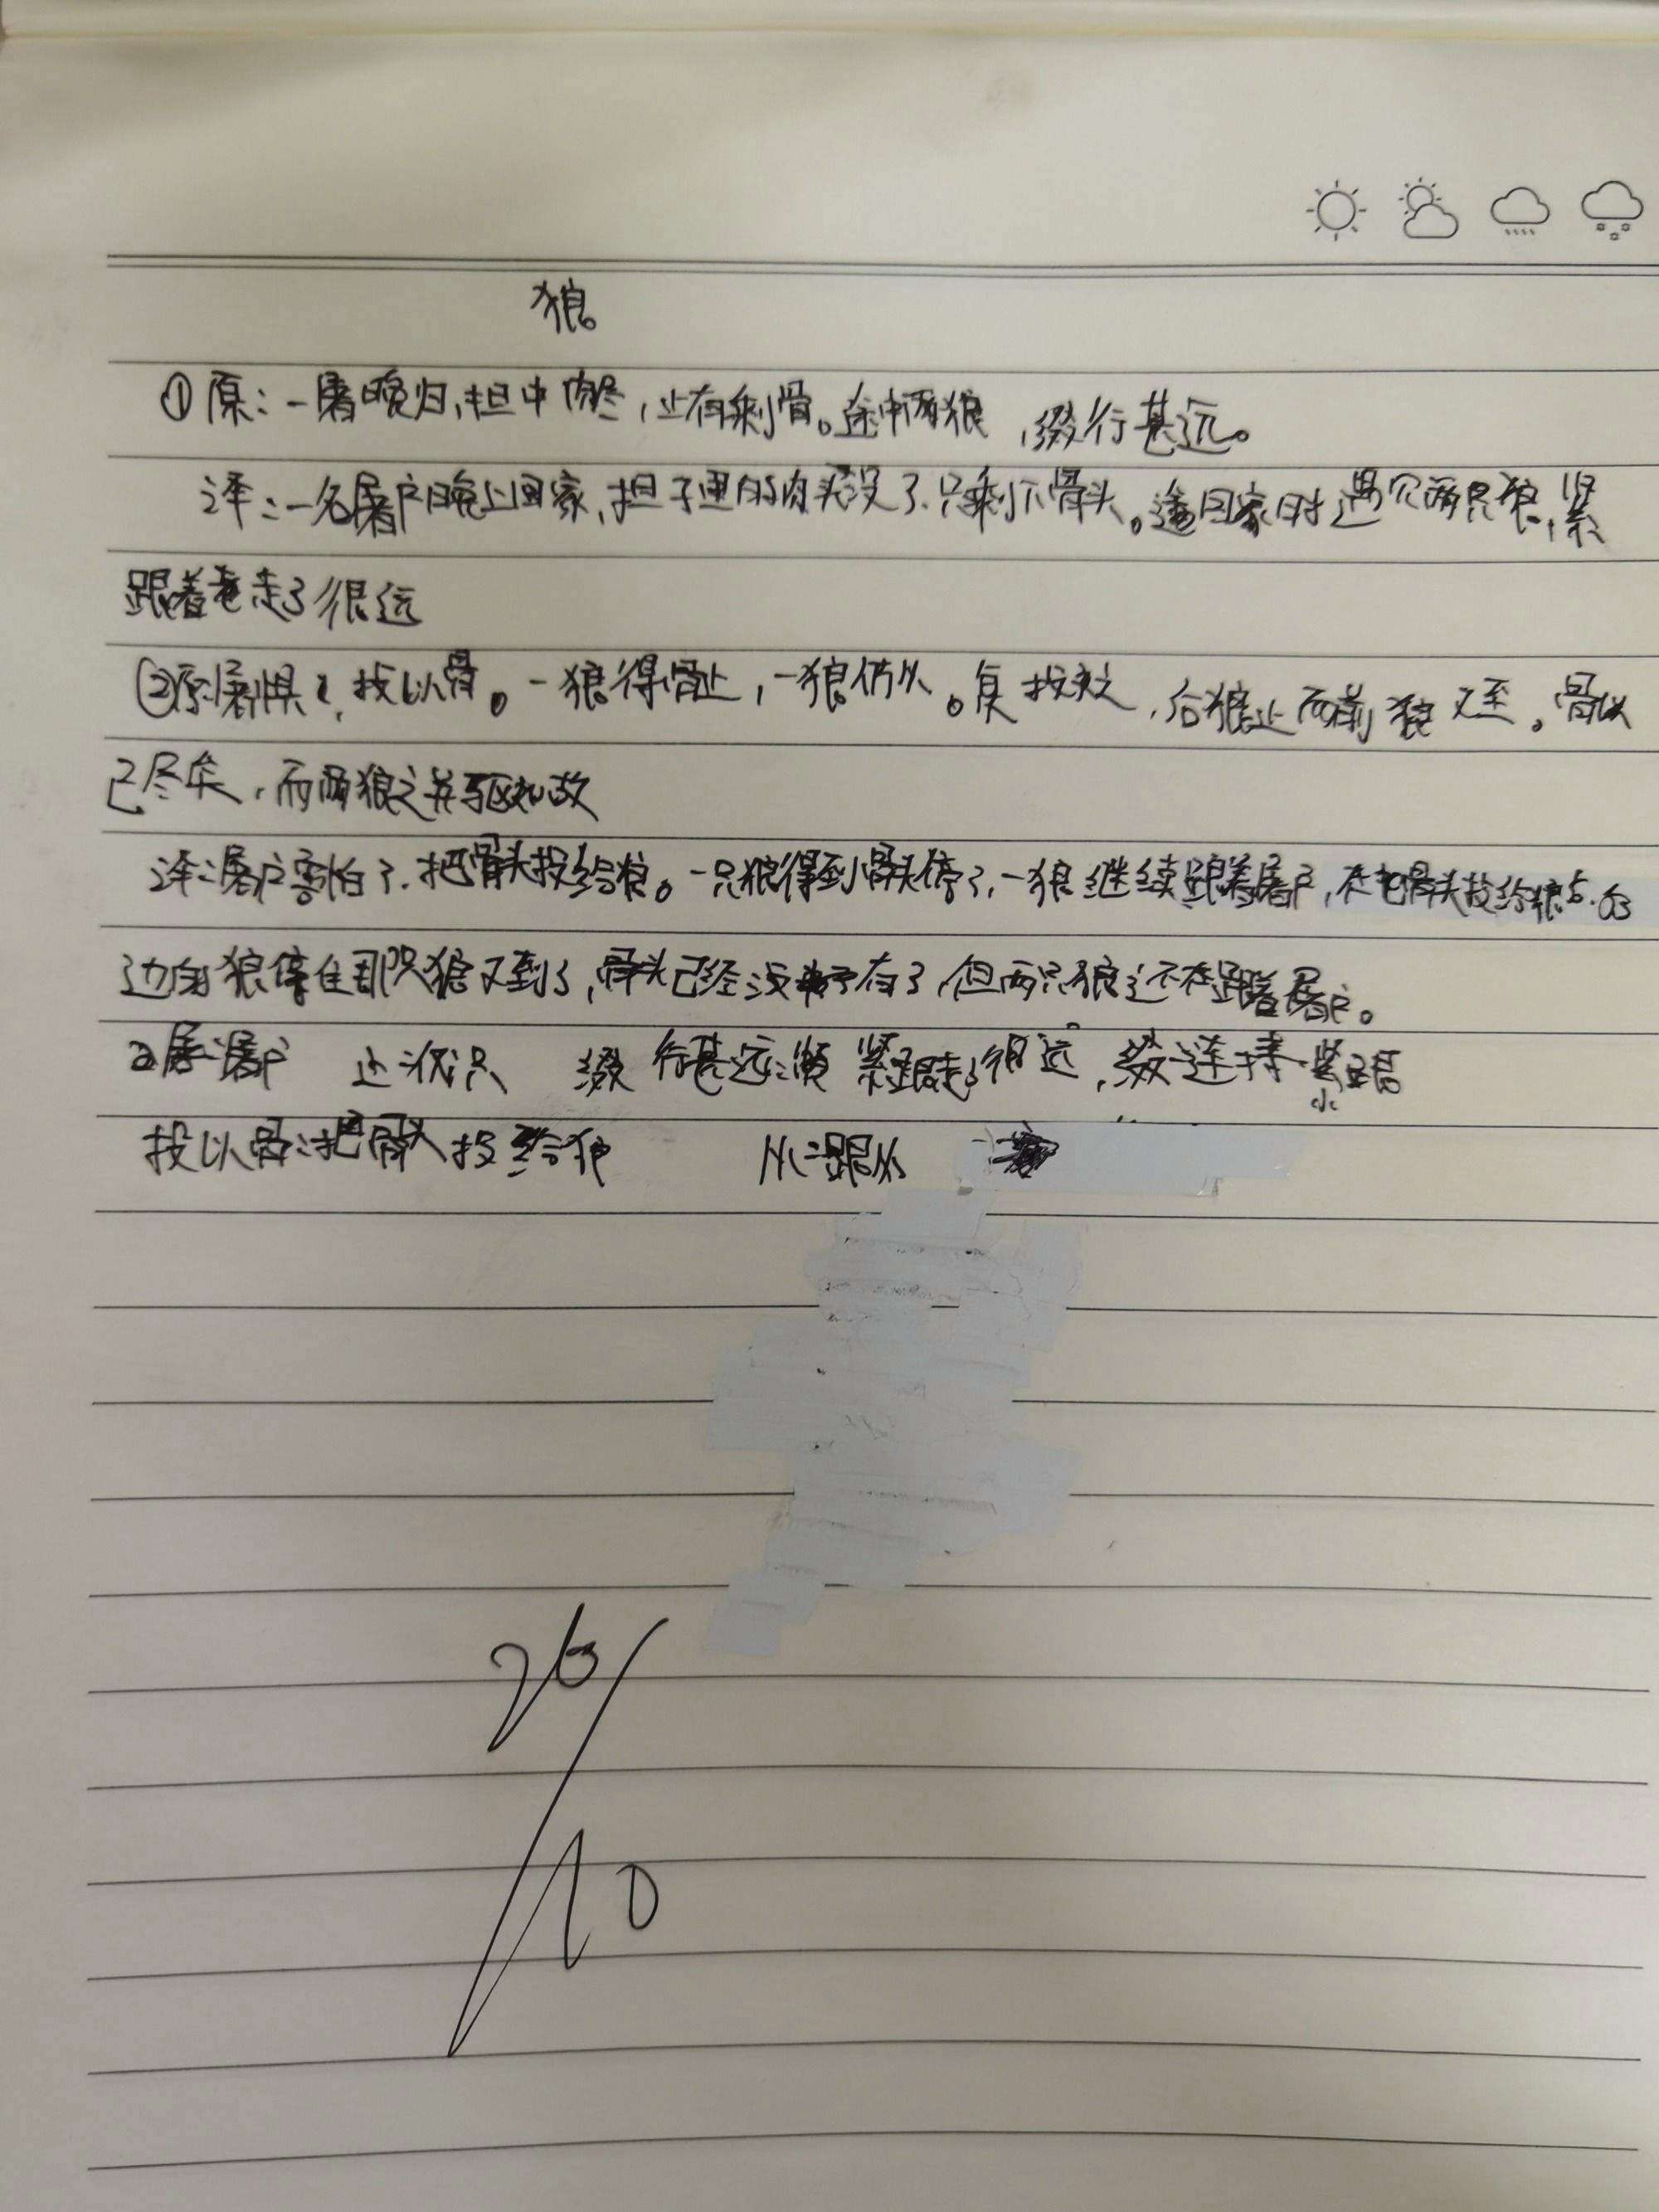 狼
①原:一屠晚归,担中肉尽,止有剩骨。途中两狼,缀行甚远。
译:一名屠户晚上回家,担子里的肉没了.只剩下骨头。回家时遇见两只狼,紧
跟着走了很远
②原:屠惧,投以骨。一狼得骨止,一狼仍从。复投之,后狼止而前狼又至。骨以
已尽矣,而两狼之并驱如故
译:屠户害怕了.把骨头投给狼。一只狼得到骨头停了,一狼继续跟着屠户,在把骨头投给狼
边的狼停住那只狼又到了,骨头已经没有了,但两只狼还在跟着屠户。
屠:屠户 止:仅只 缀行甚远:紧跟走了很远,缀:连接 紧跟
投以骨:把骨头投给狼 从:跟从
26/10